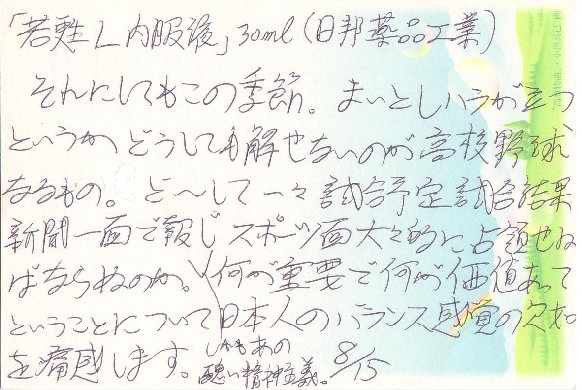 「若甦L内服液」30ml(日邦薬品工業)
それにしてもこの季節。まいとしハラが立つ
というか どうしても解せないのが高校野球
なるもの。ど〜して一々試合予定試合結果
新聞一面で報じ スポーツ面大々的に占領せね
ばならぬのか。何が重要で何が価値あって
ということについて日本人のバランス感覚の欠如
を痛感します。しかもあの
醜い精神主義。8/15